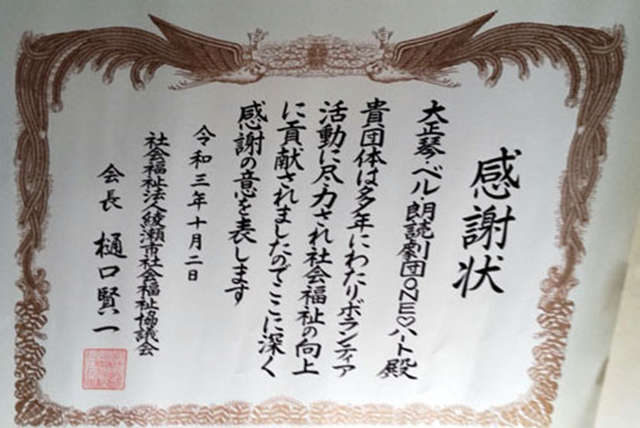 感謝状
大正琴・ベル・朗読劇団ONE♡ハート殿
貴団体は多年にわたりボランティア
活動に尽力され社会福祉の向上
に貢献されましたのでここに深く
感謝の意を表します
令和三年十月二日
社会福祉法人綾瀬市社会福祉協議会
会長 樋口賢一